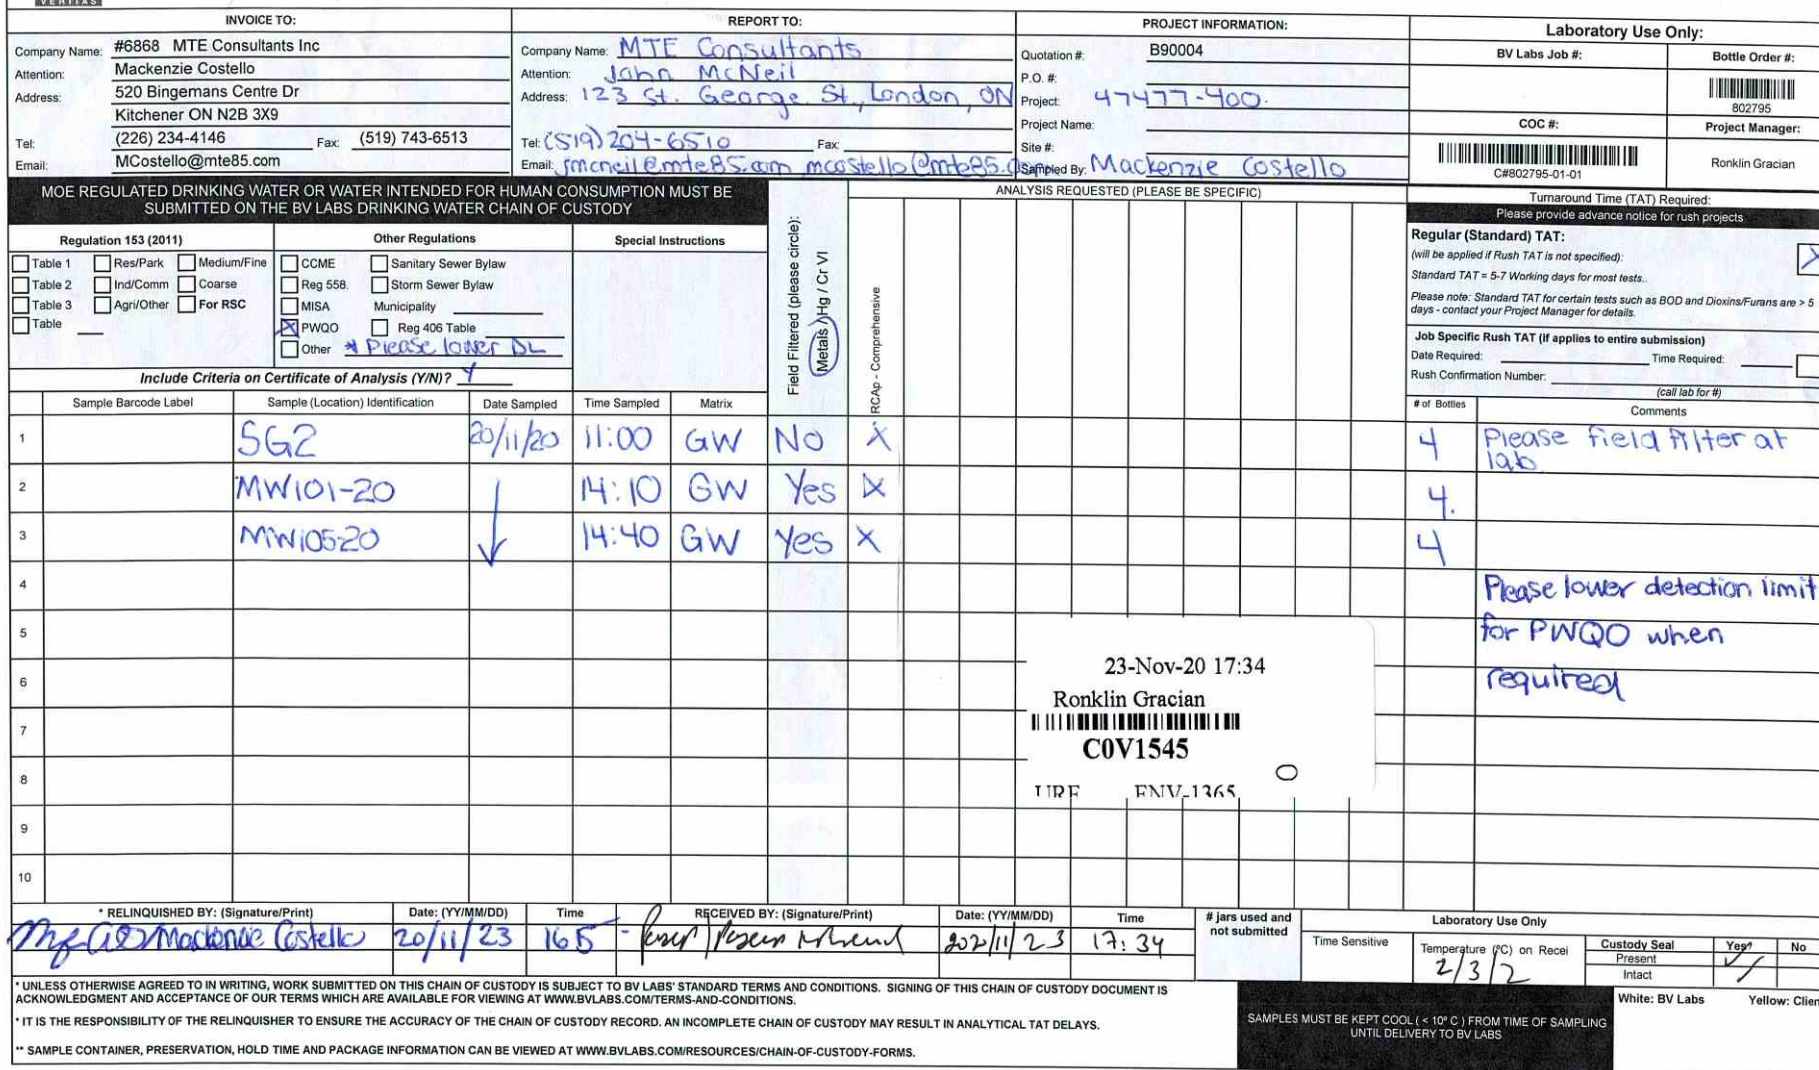 VERITAS
INVOICE TO:
Company Name: #6868 MTE Consultants Inc
Attention: Mackenzie Costello
Address: 520 Bingemans Centre Dr
Kitchener ON N2B 3X9
Tel: (226) 234-4146 Fax: (519) 743-6513
Email: MCostello@mte85.com
REPORT TO:
Company Name: MTE Consultants
Attention: John McNeil
Address: 123 St. George St., London, ON
Tel: (519) 204-6510 Fax:
Email: jmcneil@mte85.com mcostello@mte85.com
PROJECT INFORMATION:
Quotation #: B90004
P.O. #:
Project: 47477-400.
Project Name:
Site #:
Sampled By: Mackenzie Costello
Laboratory Use Only:
BV Labs Job #: Bottle Order #:
802795
COC #: Project Manager:
C#802795-01-01 Ronklin Gracian
MOE REGULATED DRINKING WATER OR WATER INTENDED FOR HUMAN CONSUMPTION MUST BE
SUBMITTED ON THE BV LABS DRINKING WATER CHAIN OF CUSTODY
ANALYSIS REQUESTED (PLEASE BE SPECIFIC)
Turnaround Time (TAT) Required:
Please provide advance notice for rush projects
Regulation 153 (2011) Other Regulations Special Instructions
Table 1 Res/Park Medium/Fine CCME Sanitary Sewer Bylaw
Table 2 Ind/Comm Coarse Reg 558. Storm Sewer Bylaw
Table 3 Agri/Other For RSC MISA Municipality
Table X PWQO Reg 406 Table
Other * Please lower DL
Include Criteria on Certificate of Analysis (Y/N)? Y
Field Filtered (please circle):
Metals / Hg / Cr VI
RCAp - Comprehensive
Regular (Standard) TAT: X
(will be applied if Rush TAT is not specified):
Standard TAT = 5-7 Working days for most tests..
Please note: Standard TAT for certain tests such as BOD and Dioxins/Furans are > 5
days - contact your Project Manager for details.
Job Specific Rush TAT (if applies to entire submission)
Date Required: Time Required:
Rush Confirmation Number:
(call lab for #)
Sample Barcode Label Sample (Location) Identification Date Sampled Time Sampled Matrix # of Bottles Comments
1 SG2 20/11/20 11:00 GW No X 4 Please field filter at
lab
2 MW101-20 14:10 GW Yes X 4.
3 MW105-20 14:40 GW Yes X 4
4 Please lower detection limit
5 for PWQO when
6 required
7
8
9
10
23-Nov-20 17:34
Ronklin Gracian
C0V1545
ENV-1365
* RELINQUISHED BY: (Signature/Print) Date: (YY/MM/DD) Time RECEIVED BY: (Signature/Print) Date: (YY/MM/DD) Time # jars used and
not submitted
Mackenzie Costello 20/11/23 17:34
Laboratory Use Only
Time Sensitive Temperature (ºC) on Recei
2/3/2
Custody Seal Yes No
Present ✓
Intact /
* UNLESS OTHERWISE AGREED TO IN WRITING, WORK SUBMITTED ON THIS CHAIN OF CUSTODY IS SUBJECT TO BV LABS' STANDARD TERMS AND CONDITIONS. SIGNING OF THIS CHAIN OF CUSTODY DOCUMENT IS
ACKNOWLEDGMENT AND ACCEPTANCE OF OUR TERMS WHICH ARE AVAILABLE FOR VIEWING AT WWW.BVLABS.COM/TERMS-AND-CONDITIONS.
* IT IS THE RESPONSIBILITY OF THE RELINQUISHER TO ENSURE THE ACCURACY OF THE CHAIN OF CUSTODY RECORD. AN INCOMPLETE CHAIN OF CUSTODY MAY RESULT IN ANALYTICAL TAT DELAYS.
** SAMPLE CONTAINER, PRESERVATION, HOLD TIME AND PACKAGE INFORMATION CAN BE VIEWED AT WWW.BVLABS.COM/RESOURCES/CHAIN-OF-CUSTODY-FORMS.
SAMPLES MUST BE KEPT COOL ( < 10º C ) FROM TIME OF SAMPLING
UNTIL DELIVERY TO BV LABS
White: BV Labs Yellow: Clien